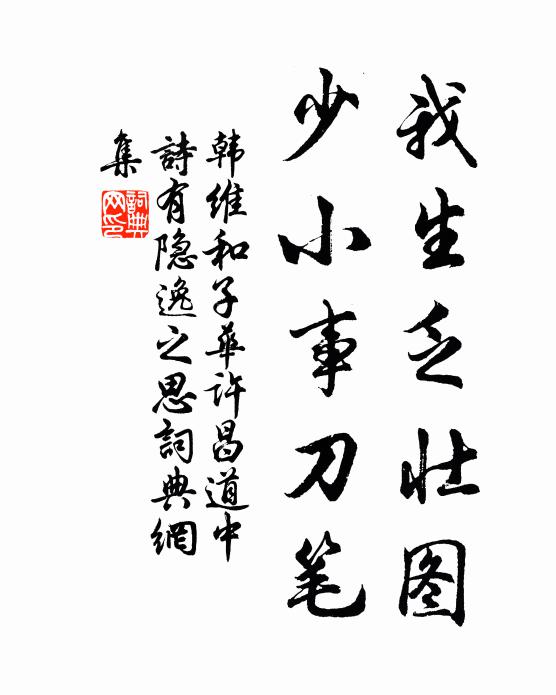 我生乏壮图
少小事刀笔
韩维和子華许昌道中
詩有隐逸之思詞典網
集
詞典
网印